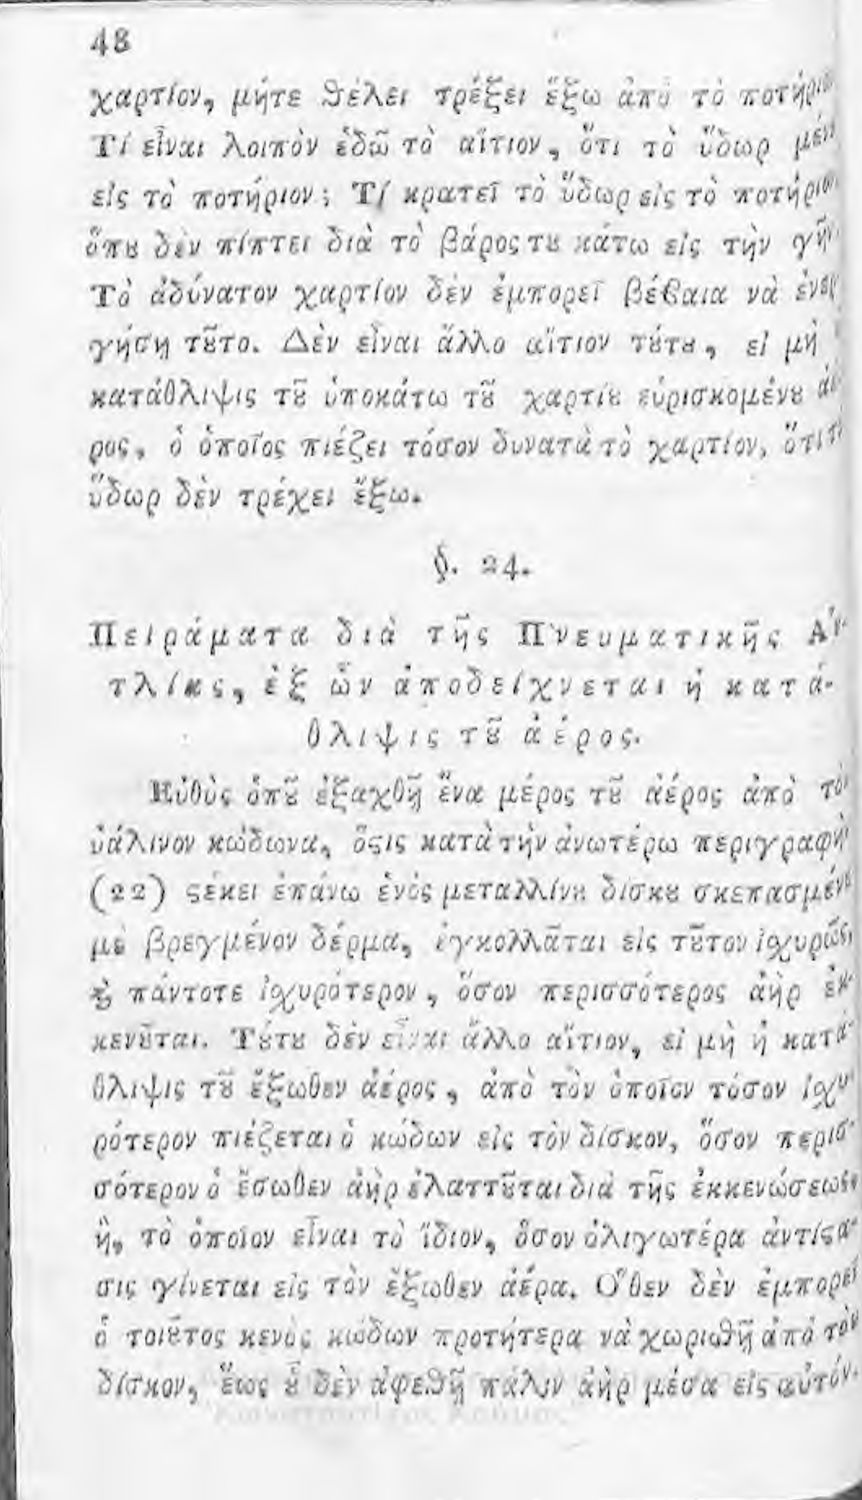 48
χαρτίον, μήτε θέλει τρέξει ἔξω ἀπὸ τὸ ποτήριον
Τί εἶναι λοιπὸν ἐδῶ τὸ αἴτιον, ὅτι τὸ ὕδωρ μένει
εἰς τὸ ποτήριον; Τί κρατεῖ τὸ ὕδωρ εἰς τὸ ποτήριον
ὅπȣ δὲν πίπτει διὰ τὸ βάρος τȣ κάτω εἰς τὴν γῆν
Τὸ ἀδύνατον χαρτίον δὲν ἐμπορεῖ βέβαια νὰ ἐνερ
γήσῃ τȣ͂το. Δὲν εἶναι ἄλλο αἴτιον τȣ́τȣ, εἰ μὴ
κατάθλιψις τȣ͂ ὑποκάτω τȣ͂ χαρτίȣ εὑρισκομένȣ ἀέ
ρος, ὁ ὁποῖος πιέζει τόσον δυνατὰ τὸ χαρτίον, ὅτι τὸ
ὕδωρ δὲν τρέχει ἔξω.
§. 24.
Πειράματα διὰ τῆς Πνευματικῆς Ἀν-
τλίας, ἐξ ὧν ἀποδείχνεται ἡ κατά-
θλιψις τȣ͂ ἀέρος.
Εὐθὺς ὁπȣ͂ ἐξαχθῇ ἕνα μέρος τȣ͂ ἀέρος ἀπὸ τὸν
ὑάλινον κώδωνα, ὅϛις κατὰ τὴν ἀνωτέρω περιγραφὴν
(22) ϛέκει ἐπάνω ἑνὸς μεταλλίνȣ δίσκȣ σκεπασμένȣ
μὲ βρεγμένον δέρμα, ἐγκολλᾶται εἰς τȣ͂τον ἰσχυρῶς,
ϗ πάντοτε ἰσχυρότερον, ὅσον περισσότερος ἀὴρ ἐκ-
κενȣ͂ται. Τȣ́τȣ δὲν εἶναι ἄλλο αἴτιον, εἰ μὴ ἡ κατά-
θλιψις τȣ͂ ἔξωθεν ἀέρος, ἀπὸ τὸν ὁποῖον τόσον ἰσχυ-
ρότερον πιέζεται ὁ κώδων εἰς τὸν δίσκον, ὅσον περισ-
σότερον ὁ ἔσωθεν ἀὴρ ἐλαττȣ͂ται διὰ τῆς ἐκκενώσεως
ἢ, τὸ ὁποῖον εἶναι τὸ ἴδιον, ὅσον ὀλιγωτέρα ἀντίϛα-
σις γίνεται εἰς τὸν ἔξωθεν ἀέρα. Ὅθεν δὲν ἐμπορεῖ
ὁ τοιȣ͂τος κενὸς κώδων προτήτερα νὰ χωρισθῇ ἀπὸ τὸν
δίσκον, ἕως ȣ̔͂ δὲν ἀφεθῇ πάλιν ἀὴρ μέσα εἰς αὐτόν.